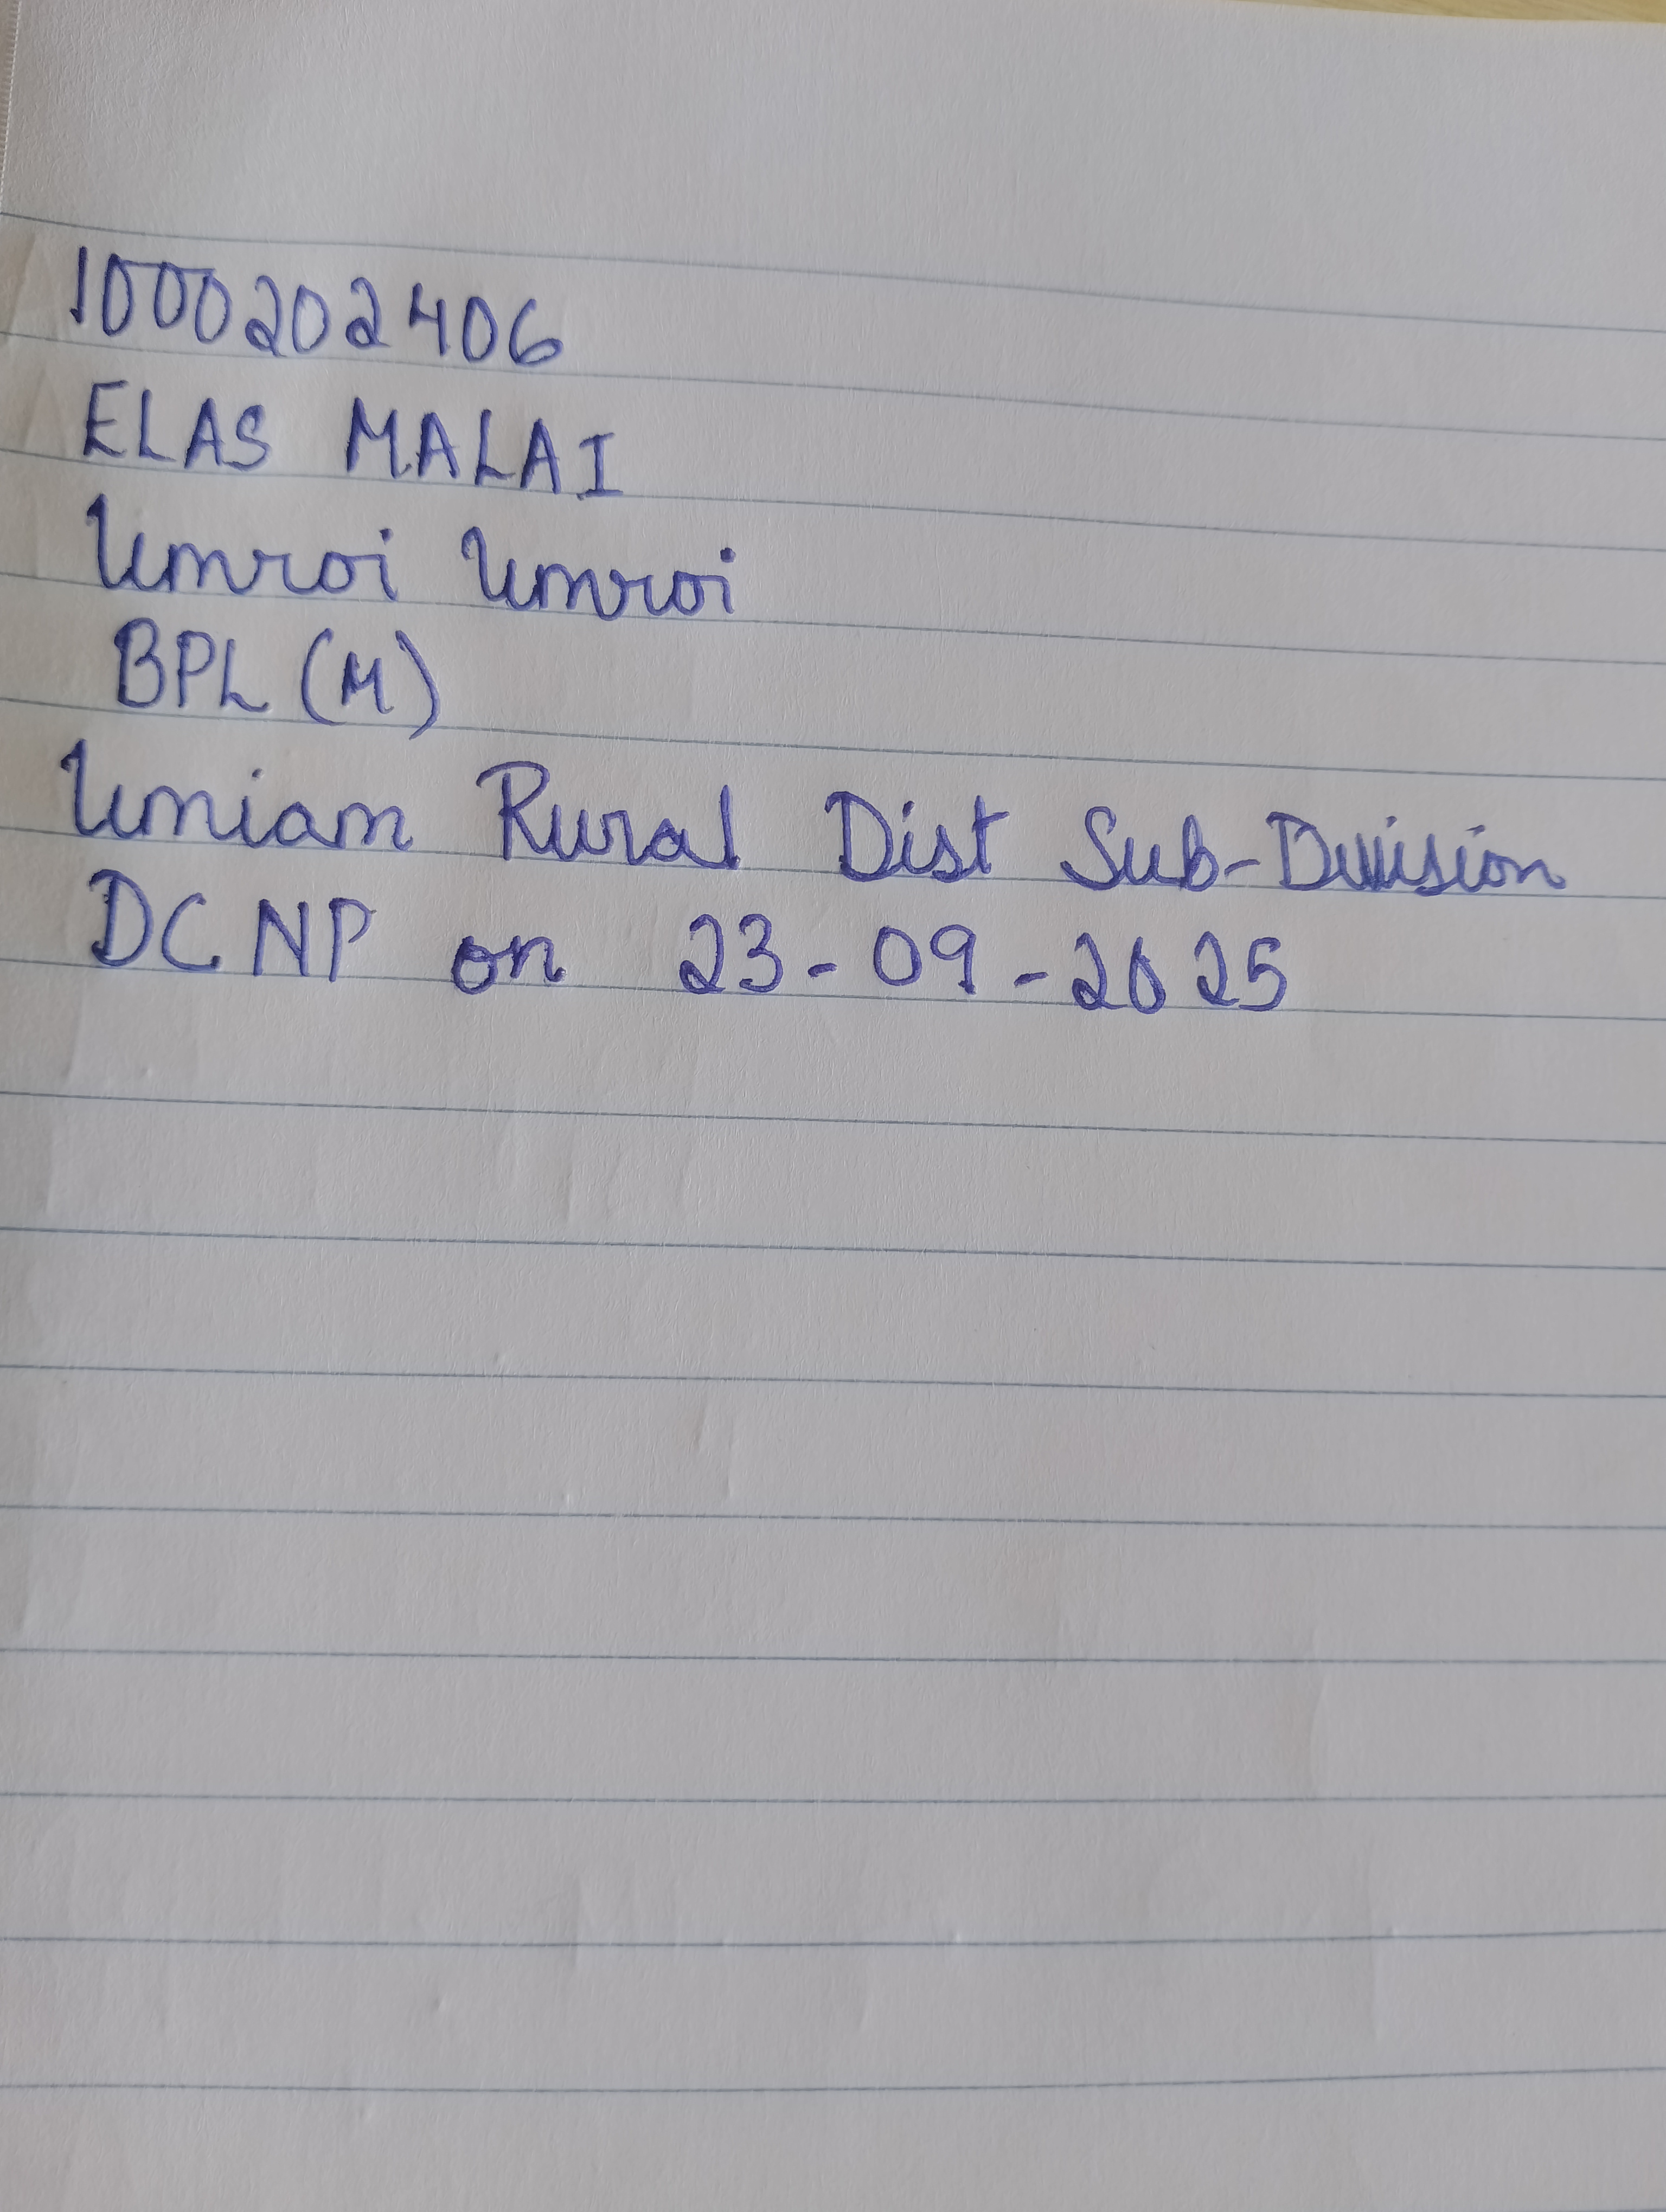 1000202406
ELAS MALAI
Umroi Umroi
BPL (M)
Umiam Rural Dist Sub-Division
DC NP on 23-09-2025